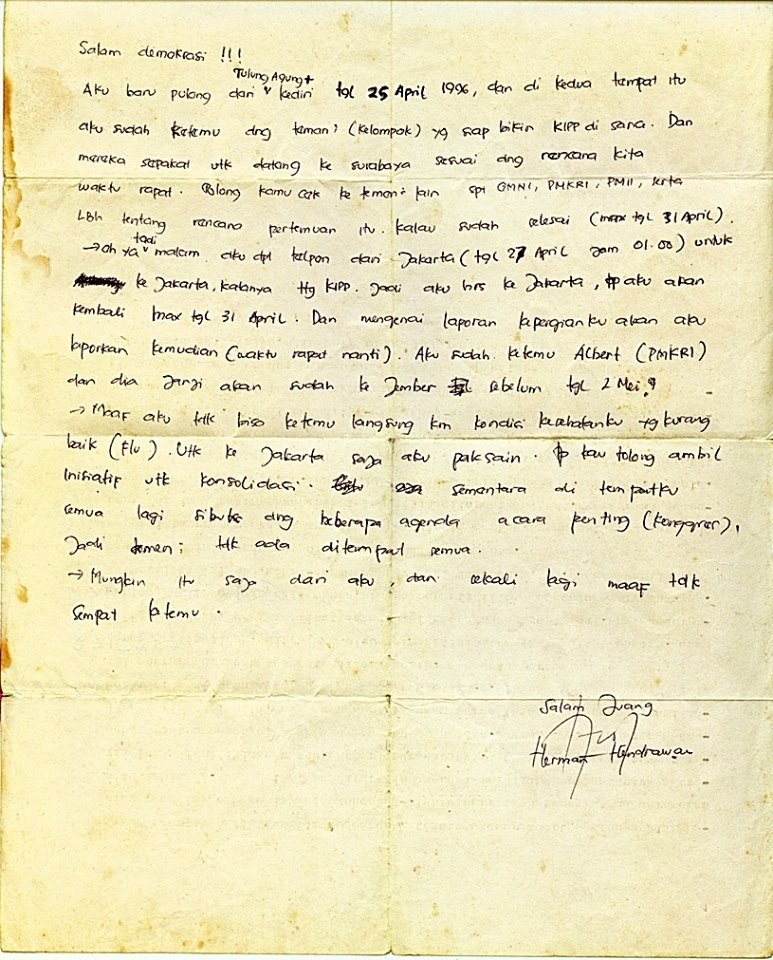 Salam demokrasi !!!
Aku baru pulang dari Tulung Agung + kediri tgl 25 April 1996, dan di kedua tempat itu
aku sudah ketemu dng teman² (kelompok) yg siap bikin KIPP di sana. Dan
mereka sepakat utk datang ke surabaya sesuai dng rencana kita
waktu rapat. tolong kamu cek ke teman² lain spt GMNI, PMKRI, PMII, serta
LBH tentang rencana pertemuan itu. kalau sudah selesai (max tgl 31 April).
→ Oh ya tadi malam aku dpt telpon dari Jakarta (tgl 27 April jam 01.00) untuk
ke Jakarta, katanya ttg KIPP. Jadi aku hrs ke Jakarta, aku akan
kembali max tgl 31 April. Dan mengenai laporan kepergianku akan aku
laporkan kemudian (waktu rapat nanti). Aku sudah ketemu Albert (PMKRI)
dan dia janji akan sudah ke Jember sebelum tgl 2 Mei.
→ Maaf aku tdk bisa ketemu langsung krn kondisi kesehatanku yg kurang
baik (Flu). Utk ke Jakarta saja aku paksain. kau tolong ambil
inisiatif utk konsolidasi. sementara di tempatku
semua lagi sibuk dng beberapa agenda acara penting (konggres),
jadi temen² tdk ada ditempat semua.
→ Mungkin itu saja dari aku, dan sekali lagi maaf tdk
sempat ketemu.
Salam Juang
Herman Hendrawan